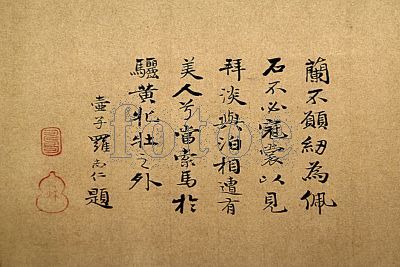 蘭不願紉為佩
石不必冠裳以見
拜淡與泊相遭有
美人兮當索馬於
驪黃牝牡之外
壺子羅志仁題
fotoe